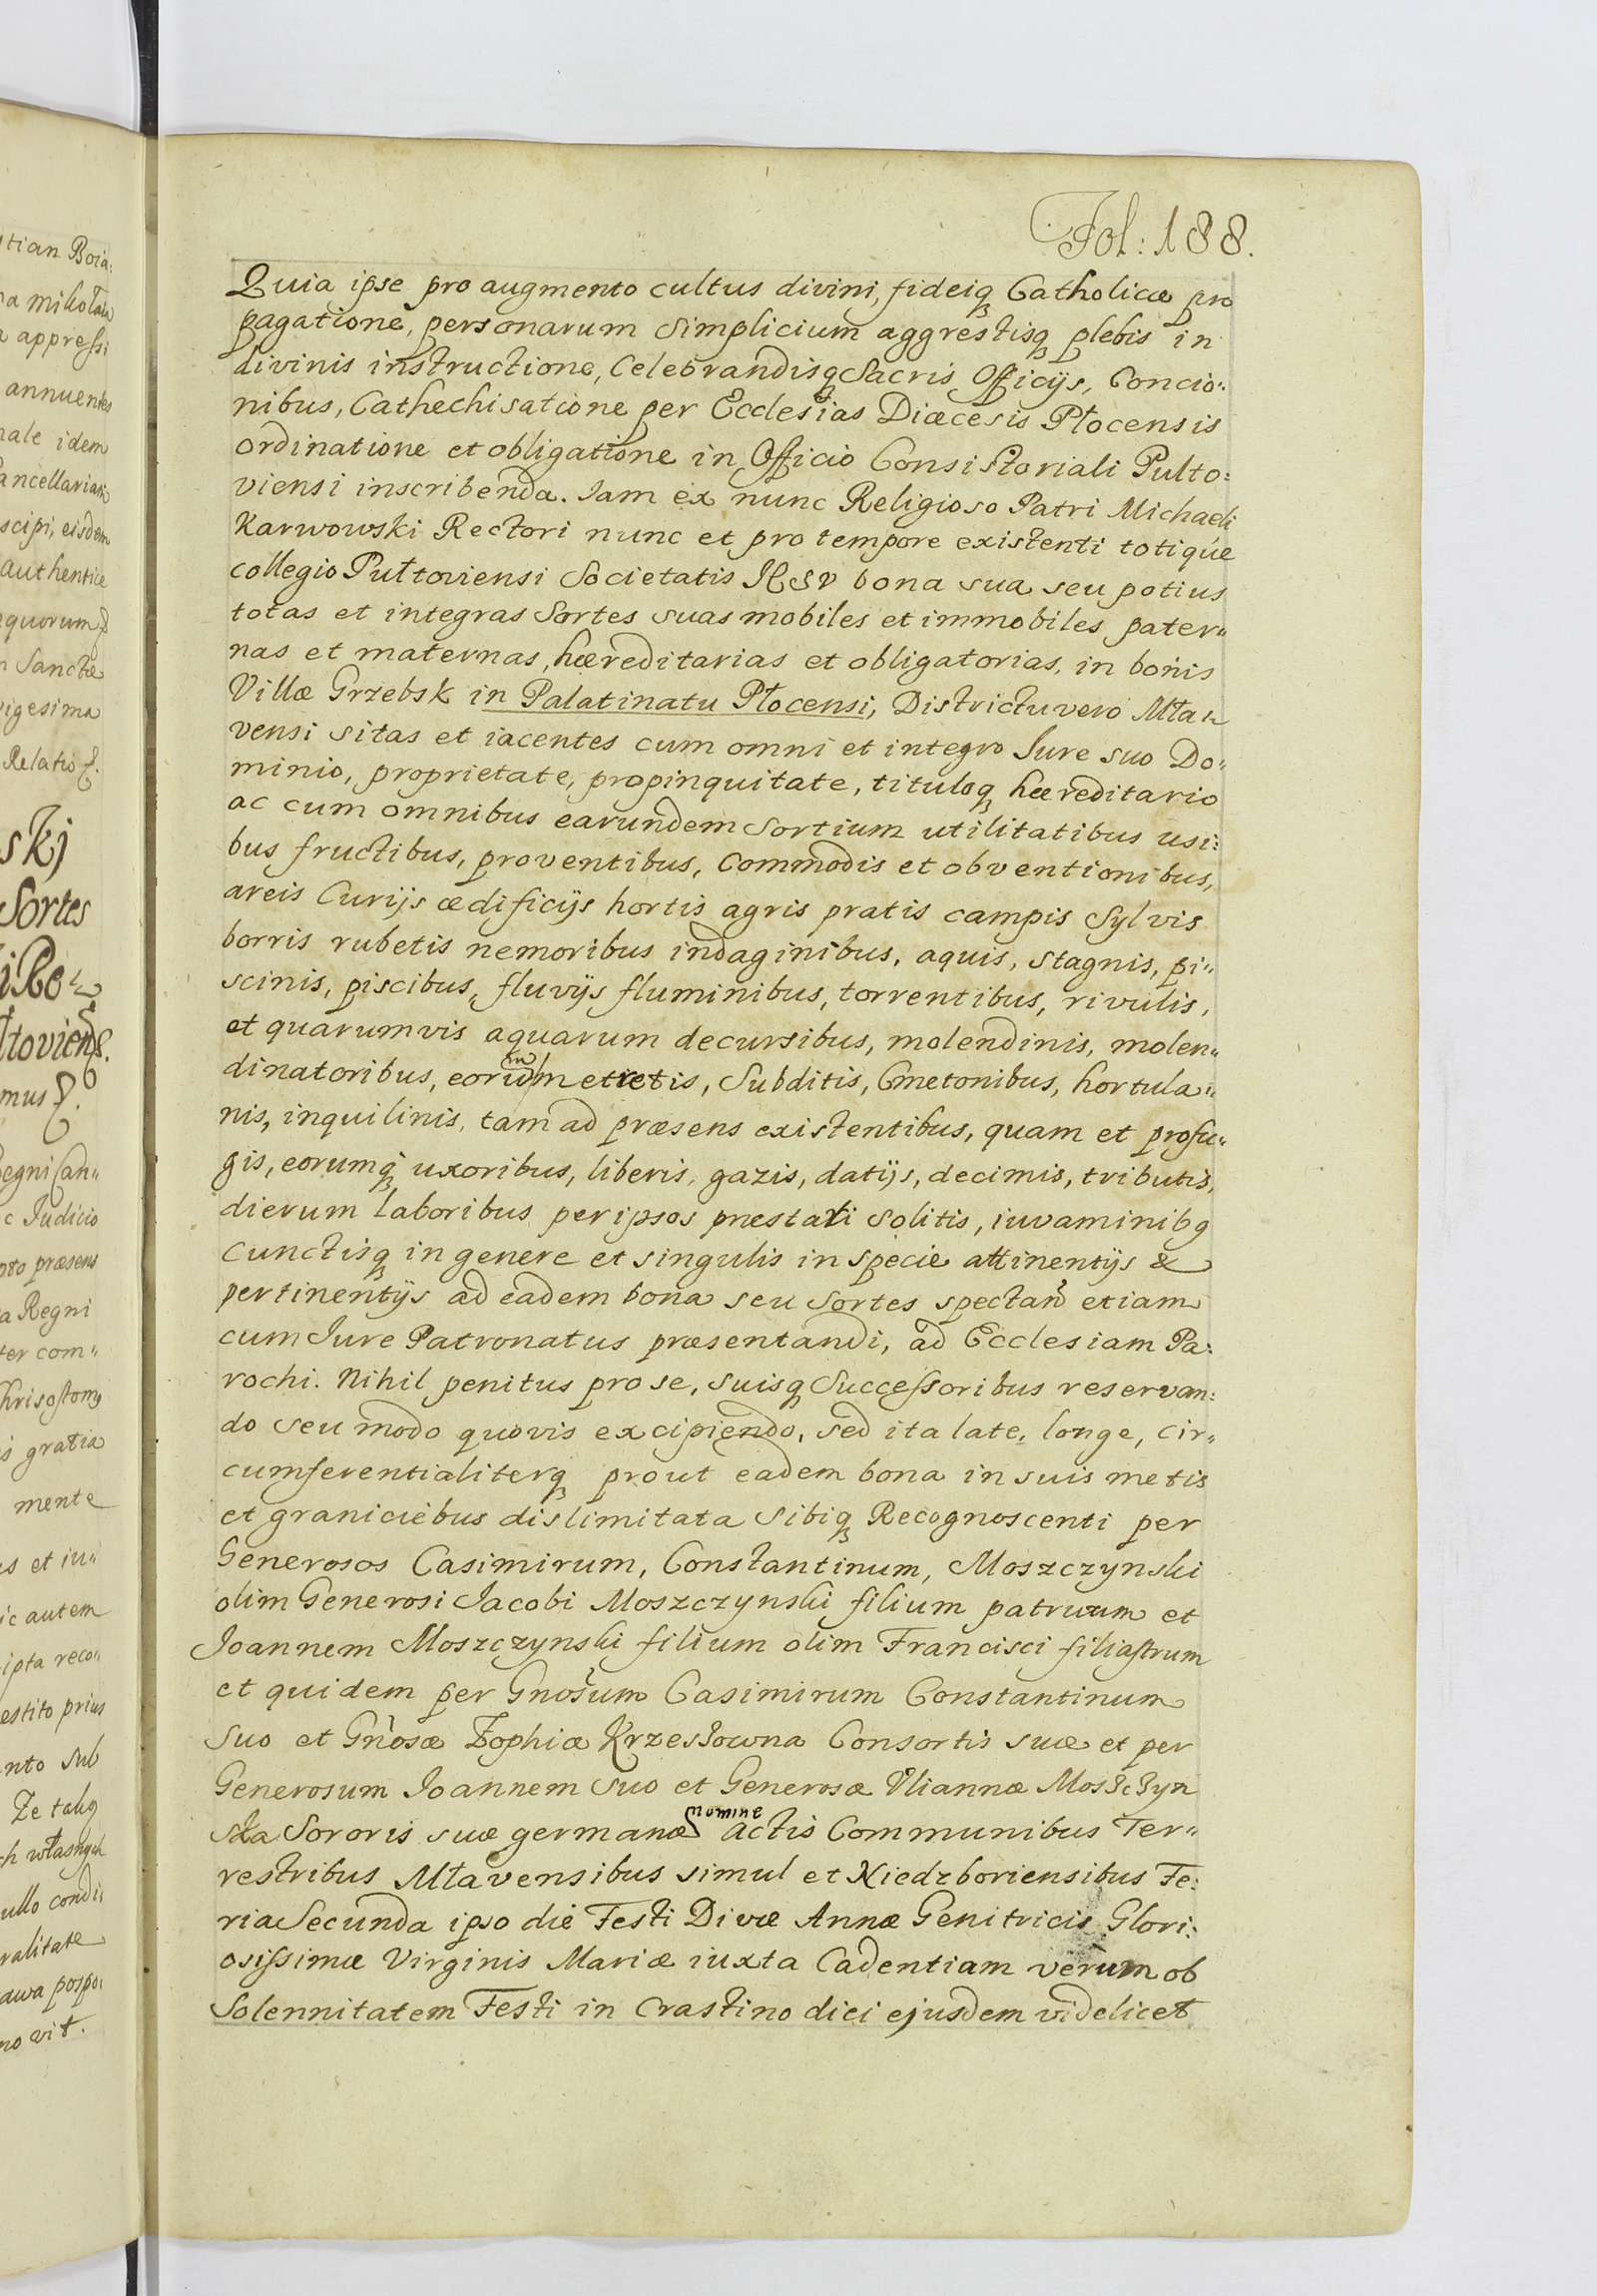 Fol: 188.
Quia ipse pro augmento cultus divini, fideiq Catholicæ pro
pagatione, personarum simplicium aggrestisq plebis in
divinis instructione, Celebrandisq Sacris Officijs, Concio:
nibus, Cathechisatione per Ecclesias Diæcesis Płocensis
ordinatione et obligatione in Officio Consistoriali Pulto:
viensi inscribenda. Iam ex nunc Religioso Patri Michaeli
Karwowski Rectori nunc et pro tempore existenti totique
collegio Pułtoviensi Societatis IESV bona sua seu potius
totas et integras Sortes suas mobiles et immobiles pater„
nas et maternas, hæreditarias et obligatorias, in bonis
Villæ Grzebsk in Palatinatu Płocensi, Districtu vero Mła„
vensi sitas et iacentes cum omni et integro Iure suo Do„
minio, proprietate, propinquitate, tituloq hæreditario
ac cum omnibus earundem Sortium utilitatibus usi:
bus fructibus, proventibus, Commodis et obventionibus,
areis Curijs ædificijs hortis agris pratis campis Sylvis
borris rubetis nemoribus indaginibus, aquis, stagnis, pi„
scinis, piscibus, fluvijs fluminibus, torrentibus, rivulis,
et quarumvis aquarum decursibus, molendinis, molen„
dinatoribus, eorum metretis, Subditis, Cmetonibus, hortula„
nis, inquilinis, tam ad præsens existentibus, quam et profu„
gis, eorumq uxoribus, liberis, gazis, datijs, decimis, tributis,
dierum laboribus per ipsos præstari solitis, iuvaminibg
Cunctisq in genere et singulis in specie attinentijs &
pertinentijs ad eadem bona seu Sortes spectan̄ etiam
cum Iure Patronatus præsentandi, ad Ecclesiam Pa:
rochi. Nihil penitus pro se, suisq Successoribus reservan:
do seu modo quovis excipiendo, sed ita late, longe, cir„
cumferentialiterq prout eadem bona in suis metis
et graniciebus dislimitata Sibiq Recognoscenti per
Generosos Casimirum, Constantinum, Moszczynski
olim Generosi Iacobi Moszczynski filium patruum et
Joannem Moszczynski filium olim Francisci filiastrum
et quidem per Gnosum Casimirum Constantinum
Suo et Gnosæ Zophiæ Krzesłowna Consortis suæ et per
Generosum Joannem Suo et Generosæ Uliannæ Moszczyn
ska Sororis suæ germanæ nomine actis Communibus Ter„
restribus Mławensibus simul et Niedzboriensibus Fe:
ria Secunda ipso die Festi Divæ Annæ Genitricis Glori:
osissimæ Virginis Mariæ iuxta Cadentiam verum ob
Solennitatem Festi in Crastino diei ejusdem videlicet